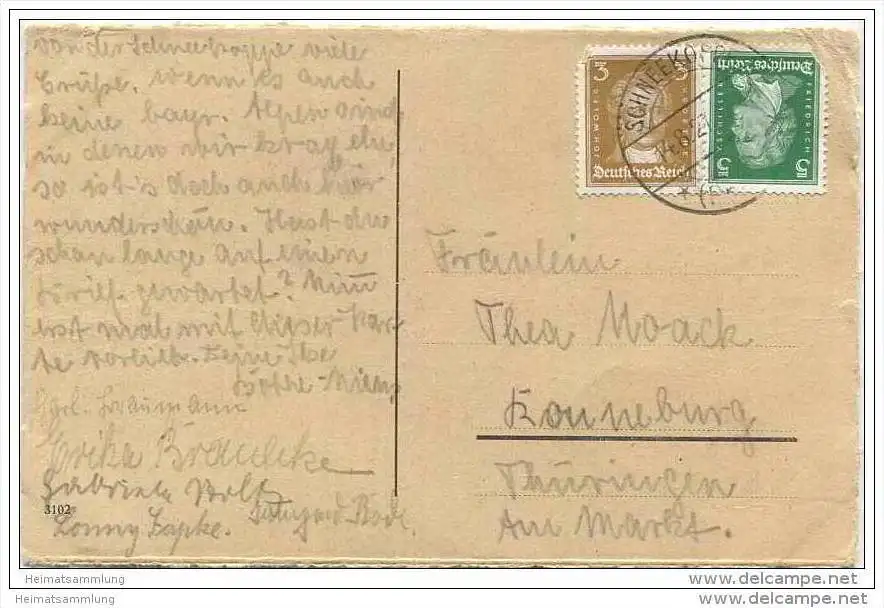 von der Schneekoppe viele
Grüße. Wenn es auch
keine bayr. Alpen sind,
in denen wir
so ist's doch auch hier
wunderschön. Hast du
schon lange auf einen
Brief gewartet? Nimm
erst mal mit dieser Kar-
te vorlieb. Deine Ilse
Käthe
Erika
Gabriele
Lonny Zapke.
3102
3
3
JOH. WOLFG.
Deutsches Reich
SCHNEEKOPPE
14.8.
Deutsches Reich
FRIEDRICH
V SCHILLER
5
5
Fräulein
Thea Noack
Ronneburg
Thüringen
Am Markt.
Heimatsammlung
Heimatsammlung
www.delcampe.net
www.delcampe.net